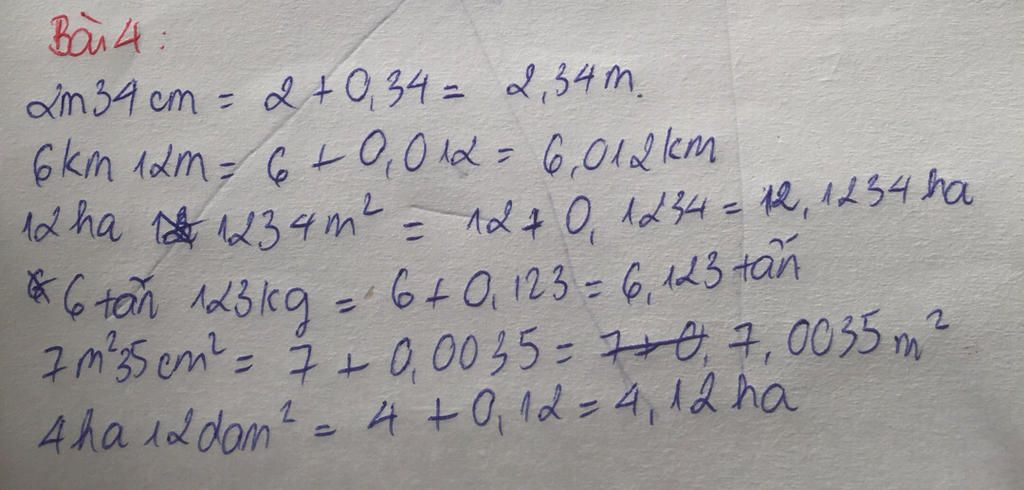 Bài 4:
2m34cm = 2 + 0,34 = 2,34m.
6km 12m = 6 + 0,012 = 6,012km
12ha 1234m² = 12 + 0,1234 = 12,1234ha
6 tấn 123kg = 6 + 0,123 = 6,123 tấn
7m²35cm² = 7 + 0,0035 = 7+0, 7,0035m²
4ha 12dam² = 4 + 0,12 = 4,12ha